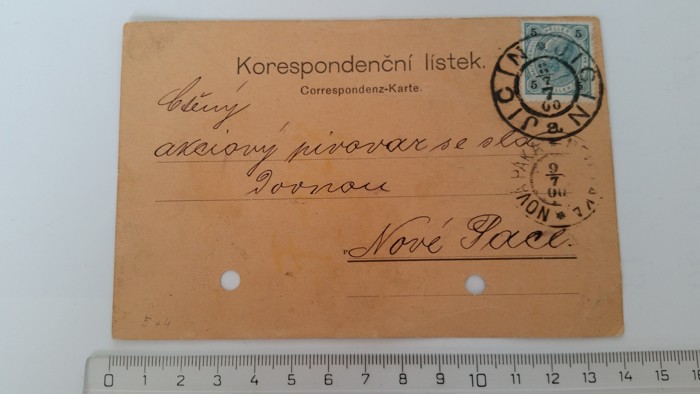 5 5
5
Korespondenční lístek.
Correspondenz-Karte.
JIČÍN * JIČÍN
7
00
Ctěný
akciový pivovar se sla
dovnou
"Nové Pace.
NOVÁ PAKA
9
7
00
5+4
0 1 2 3 4 5 6 7 8 9 10 11 12 13 14 15 16